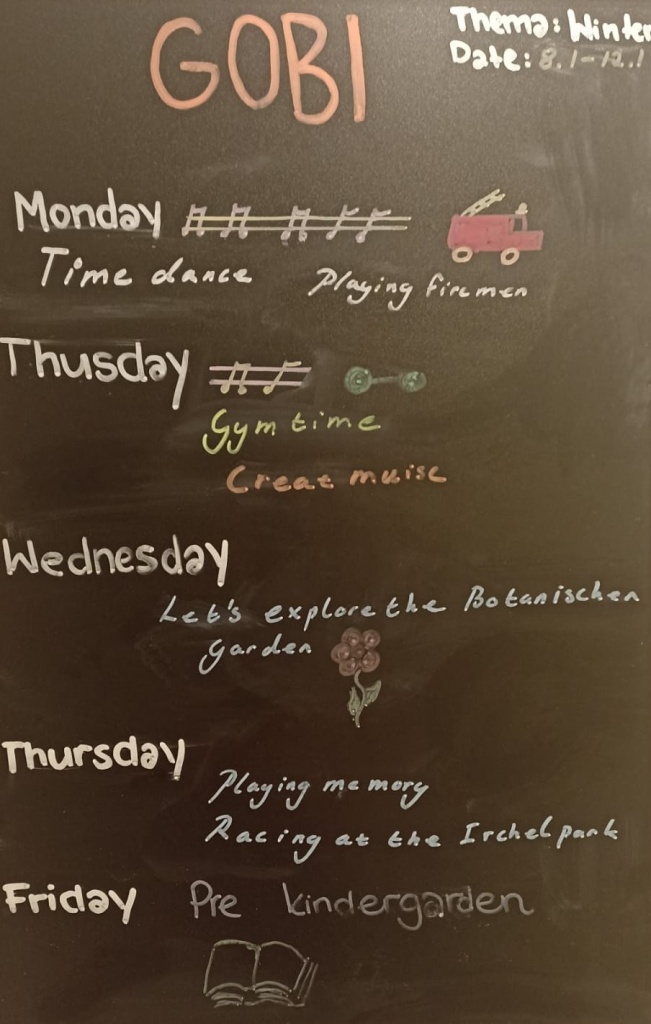 GOBI
Thema: Winter
Date: 8.1-12.1
Monday
Time dance
Playing firemen
Thusday
Gym time
Creat muisc
Wednesday
Let's explore the Botanischen
garden
Thursday
Playing memory
Racing at the Irchel park
Friday Pre kindergarden